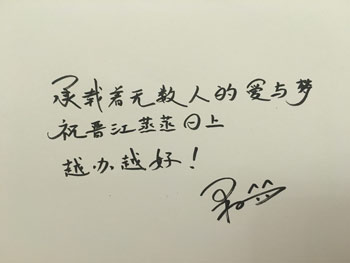 承载着无数人的爱与梦
祝晋江蒸蒸日上
越办越好！